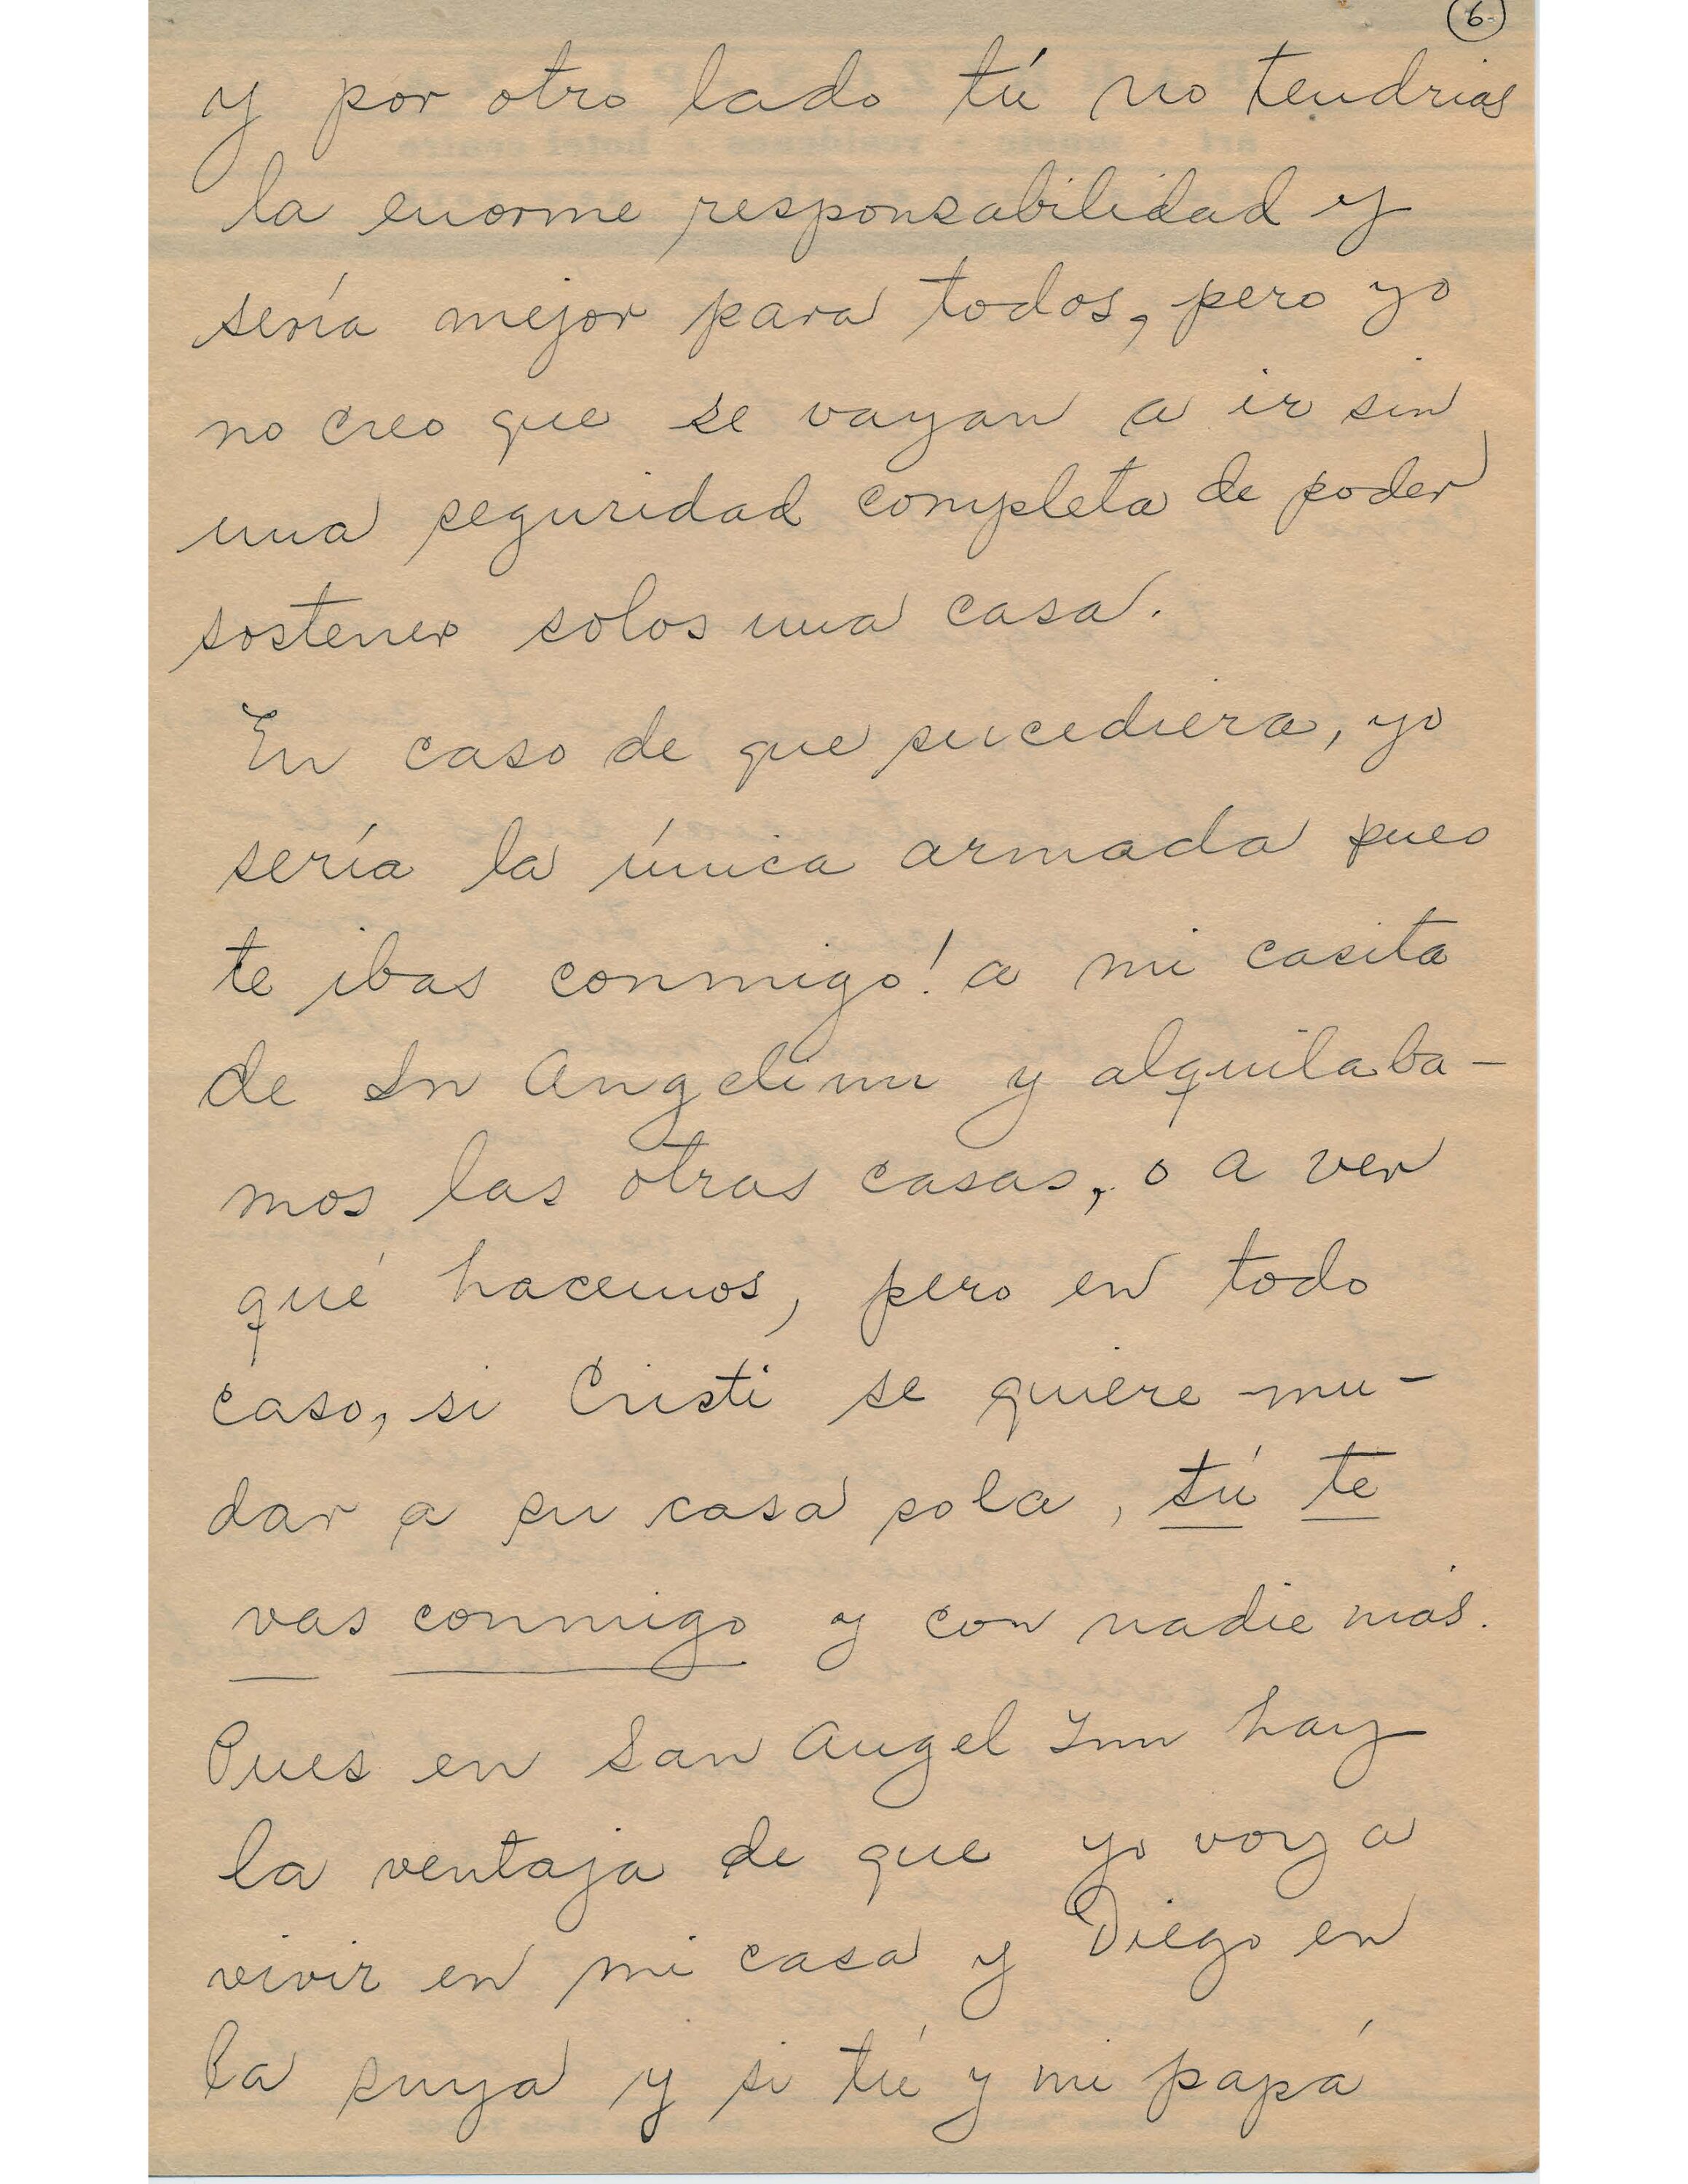 6
y por otro lado tú no tendrias
la enorme responsabilidad y
sería mejor para todos, pero yo
no creo que se vayan a ir sin
una seguridad completa de poder
sostener solos una casa.
En caso de que sucediera, yo
sería la única armada pues
te ibas conmigo! a mi casita
de Sn Angelinn y alquilaba-
mos las otras casas, o a ver
qué hacemos, pero en todo
caso, si Cristi se quiere mu-
dar a su casa sola, tú te
vas conmigo y con nadie más.
Pues en San Angel Inn hay
la ventaja de que yo voy a
vivir en mi casa y Diego en
la suya y si tú y mi papá